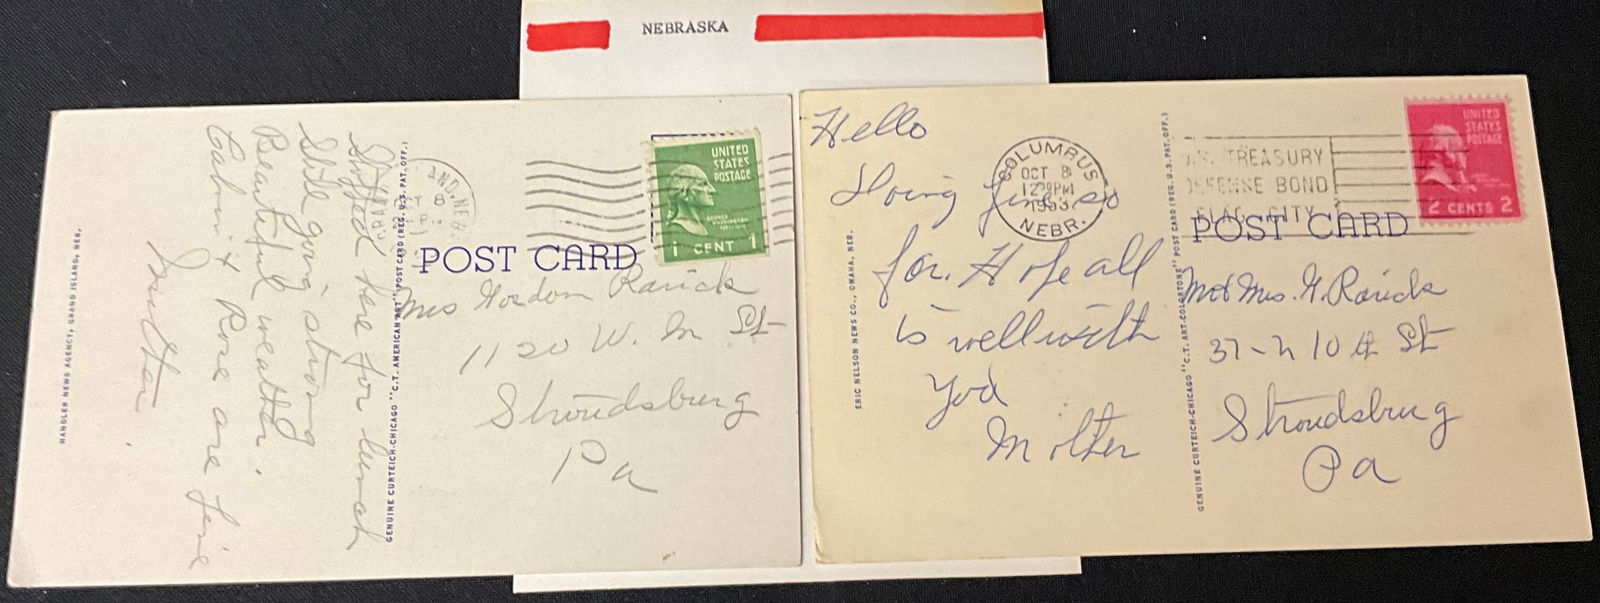 NEBRASKA
Stopped here for lunch
Still going strong
Beautiful weather.
Gabriz Rose are fine
HANDLER NEWS AGENCY, GRAND ISLAND, NEB.
GENUINE CURTEICH-CHICAGO "C.T. AMERICAN ART" POST CARD (REG. U.S. PAT. OFF.)
AND, NEB.
OCT 8
UNITED
STATES
POSTAGE
GEORGE
WASHINGTON
1 CENT 1
POST CARD
Mrs Gordon Rarick
1120 W. M St
Stroudsburg
Pa
Hello
Going fine so
far. Hope all
is well with
you
Mother
ERIC NELSON NEWS CO., OMAHA, NEB.
GENUINE CURTEICH-CHICAGO "C.T. ART-COLORTONE" POST CARD (REG. U.S. PAT. OFF.)
COLUMBUS
OCT 8
1953
NEBR.
U.S. TREASURY
DEFENSE BOND
FLAG CITY
UNITED
STATES
POSTAGE
2 CENTS 2
POST CARD
Mr Mrs. G. Rarick
37-N 10th St
Stroudsburg
Pa